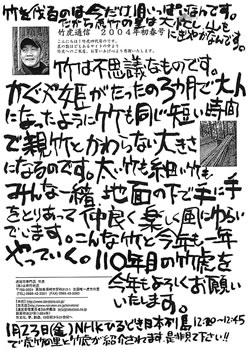 竹を伐るのは今だけ 旧い...なんです。
だから虎竹の里は大忙し、山も
にぎやかなんです。
竹虎通信　2004年初春号
こんにちは！竹虎四代目です。
竹は不思議なものです。
かぐや姫がたったの3ヵ月で大人
になったように竹も同じ短い時間
で親竹とかわらない大きさ
になるのです。太い竹も細い竹も
みんな一緒、地面の下で手に手
をとりあって仲良く楽しく風にゆらい
でいます。こんな竹と今年も一年
やっていく。110年目の竹虎を
今年もよろしくお願い
いたします。
1月23日(金)NHKひるどき日本列島 12:20〜12:45
で虎竹の里と竹虎が紹介されます。是非見て下さい!!